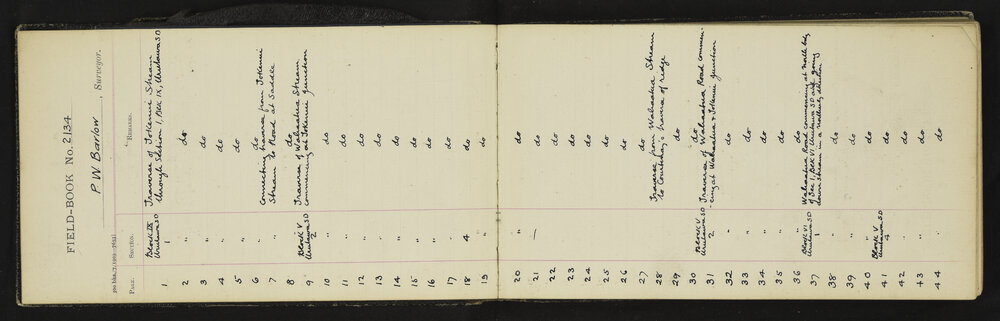 FIELD-BOOK No. 2134
P W Barlow, Surveyor.
Page. Section. Remarks.
1 Block IX Uruwawa SD 1 Traverse of Tokenui Stream
through Section 1, Blk IX, Uruwawa SD
2 " do
3 " do
4 " do
5 " do
6 " do connecting traverse from Tokenui
7 " Stream to Road at Saddle
8 " do
9 Block V Uruwawa SD 2 Traverse of Waikaatea Stream
commencing at Tokenui Junction
10 " do
11 " do
12 " do
13 " do
14 " do
15 " do
16 " do
17 " do
18 4 do
19 " do
20 " do
21 — do
22 do
23 do
24 do
25 do
26 do
27 do
28 Traverse from Waikaatea Stream
to Courtenay's traverse of ridge
29 do
30 do
31 Block V Uruwawa SD 2 Traverse of Waikaatea Road commen-
cing at Waikaatea & Tokenui Junction
32 " do
33 " do
34 " do
35 " do
36 " do
37 Block VI Uruwawa SD 1 Waikaatea Road commencing at North bdy
of Sec 1, Blk VI Uruwawa SD and going
down stream in a Northerly direction
38 " do
39 " do
40 " do
41 Block V Uruwawa SD 4 do
42 " do
43 " do
44 " do